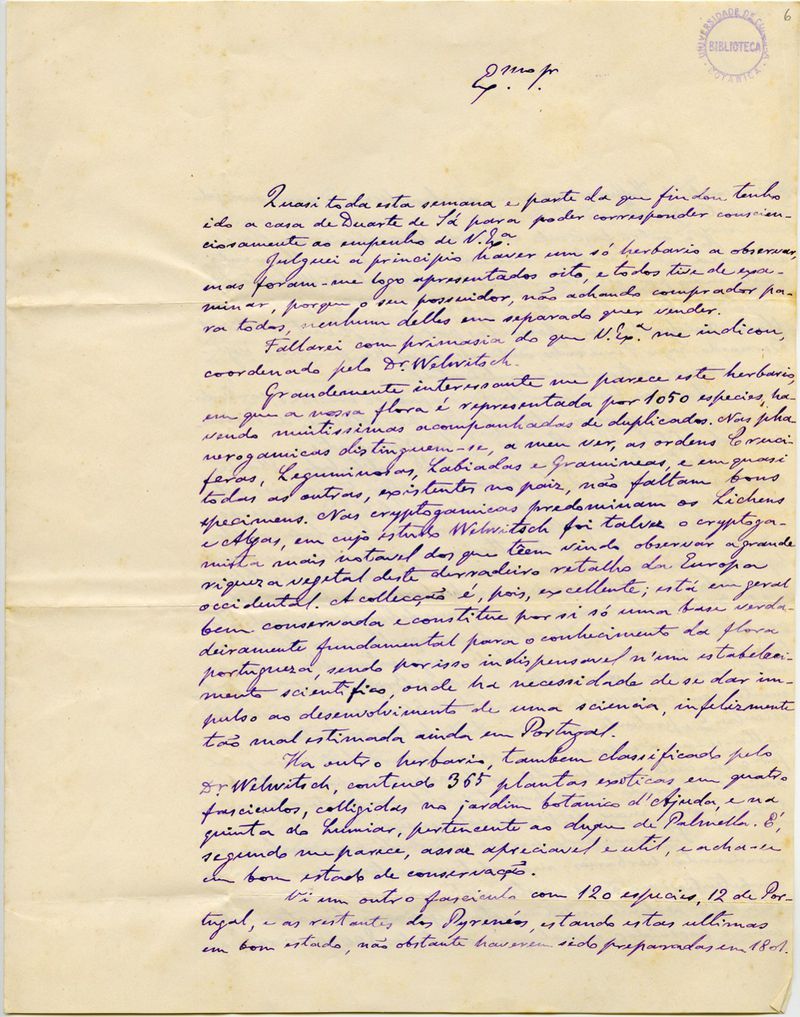 6
UNIVERSIDADE DE COIMBRA
BIBLIOTECA
BOTANICA
Ex.mo Sr.
Quasi toda esta semana e parte da que findou tenho
ido a casa de Duarte de Sá para poder corresponder conscien-
ciosamente ao empenho de V. Ex.a
Julguei a principio haver um só herbario a observar,
mas foram-me logo apresentados oito, e todos tive de exa-
minar, porque o seu possuidor, não achando comprador pa-
ra todos, nenhum delles em separado quer vender.
Fallarei com primasia do que V. Ex.a me indicou,
coordenado pelo Dr. Welwitsch.
Grandemente interessante me parece este herbario,
em que a nossa flora é representada por 1050 especies, ha-
vendo muitissimas acompanhadas de duplicados. Nas pha-
nerogamicas distinguem-se, a meu ver, as ordens Cruci-
feras, Leguminosas, Labiadas e Gramineas, e em quasi
todas as outras, existentes no paiz, não faltam bons
specimens. Nas cryptogamicas predominam os Lichens
e Algas, em cujo estudo Welwitsch foi talvez o cryptoga-
mista mais notavel dos que teem vindo observar a grande
riqueza vegetal deste derradeiro retalho da Europa
occidental. A collecção é, pois, excellente; está em geral
bem conservada e constitue por si só uma base verda-
deiramente fundamental para o conhecimento da flora
portugueza, sendo por isso indispensavel n'um estabeleci-
mento scientifico, onde ha necessidade de se dar im-
pulso ao desenvolvimento de uma sciencia, infelizmente
tão mal estimada ainda em Portugal.
Ha outro herbario, tambem classificado pelo
Dr. Welwitsch, contendo 365 plantas exoticas em quatro
fasciculos, colligidas no jardim botanico d'Ajuda, e na
quinta do Lumiar, pertencente ao duque de Palmella. É,
segundo me parece, assaz apreciavel e util, e acha-se
em bom estado de conservação.
Vi um outro fasciculo com 120 especies, 12 de Por-
tugal, e as restantes dos Pyrenéos, estando estas ultimas
em bom estado, não obstante haverem sido preparadas em 1801.